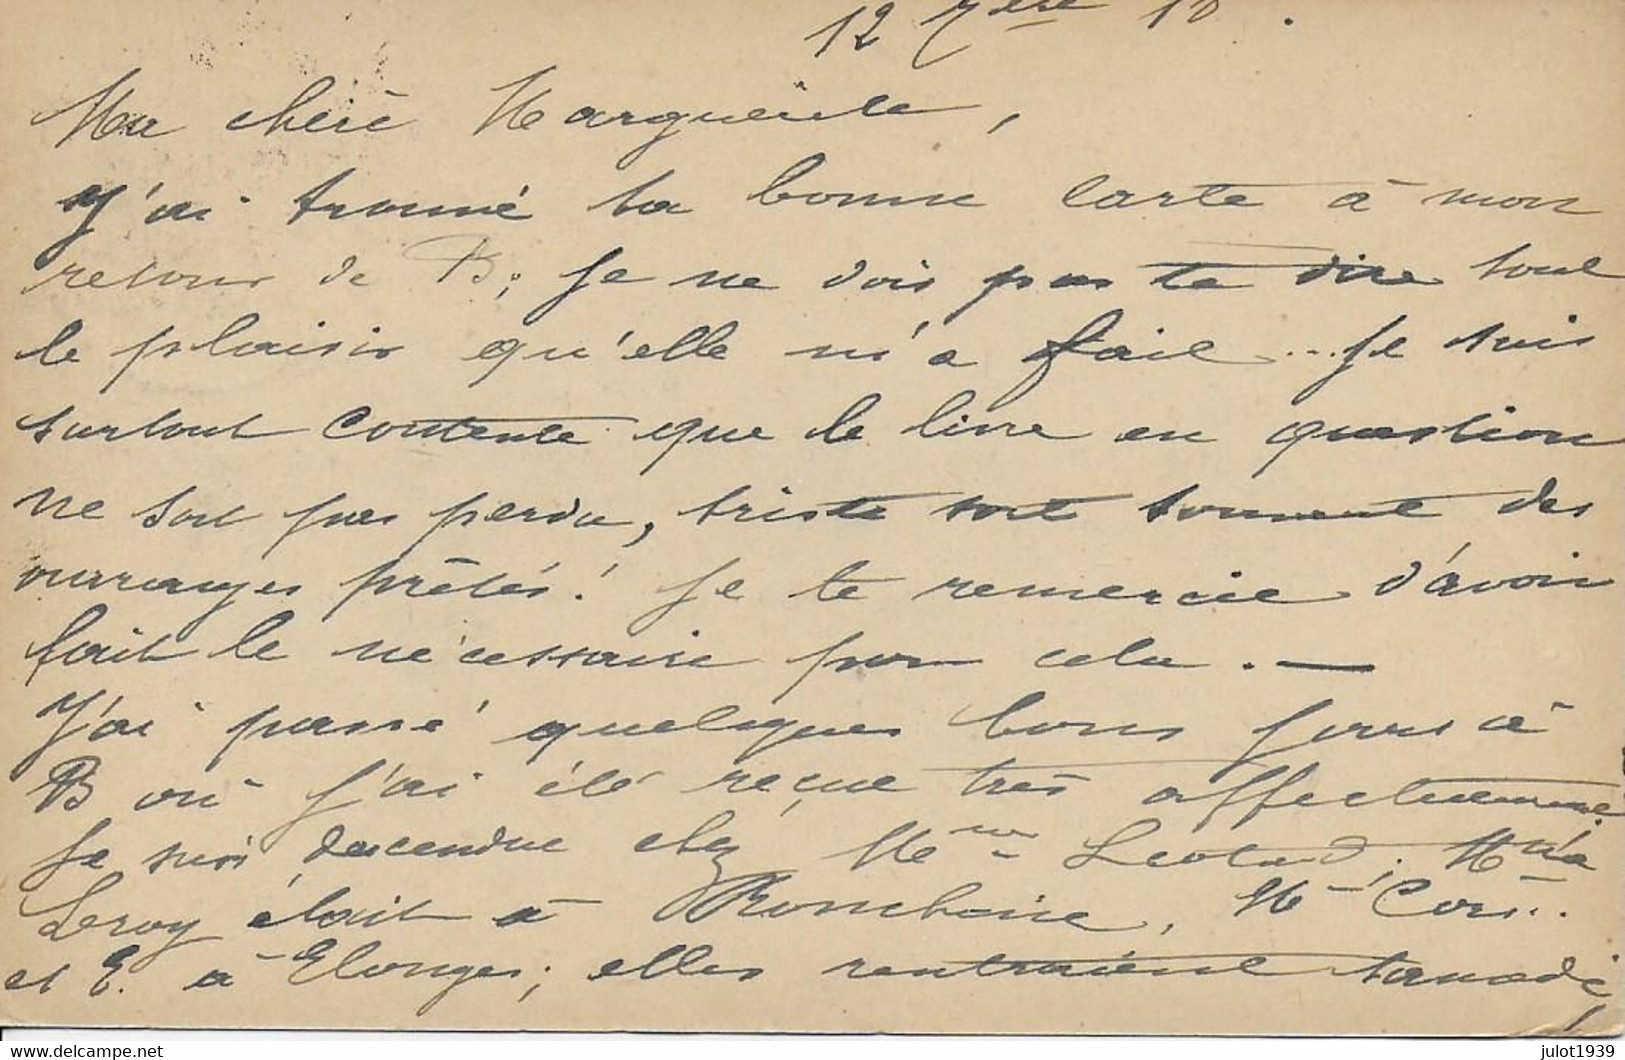 12 7bre 10.
Ma chère Marguerite,
J'ai trouvé ta bonne carte à mon
retour de B; je ne dois pas te dire tout
le plaisir qu'elle m'a fait... Je suis
surtout contente que le livre en question
ne soit pas perdu, triste sort souvent des
ouvrages prêtés! Je te remercie d'avoir
fait le nécessaire pour cela. —
J'ai passé quelques bons jours à
B où j'ai été reçue très affectueusement.
Je suis descendue chez Mme
Leroy était à Ronchaine, Me
et E. à Elouges; elles rentraient samedi,
delcampe.net
julot1939